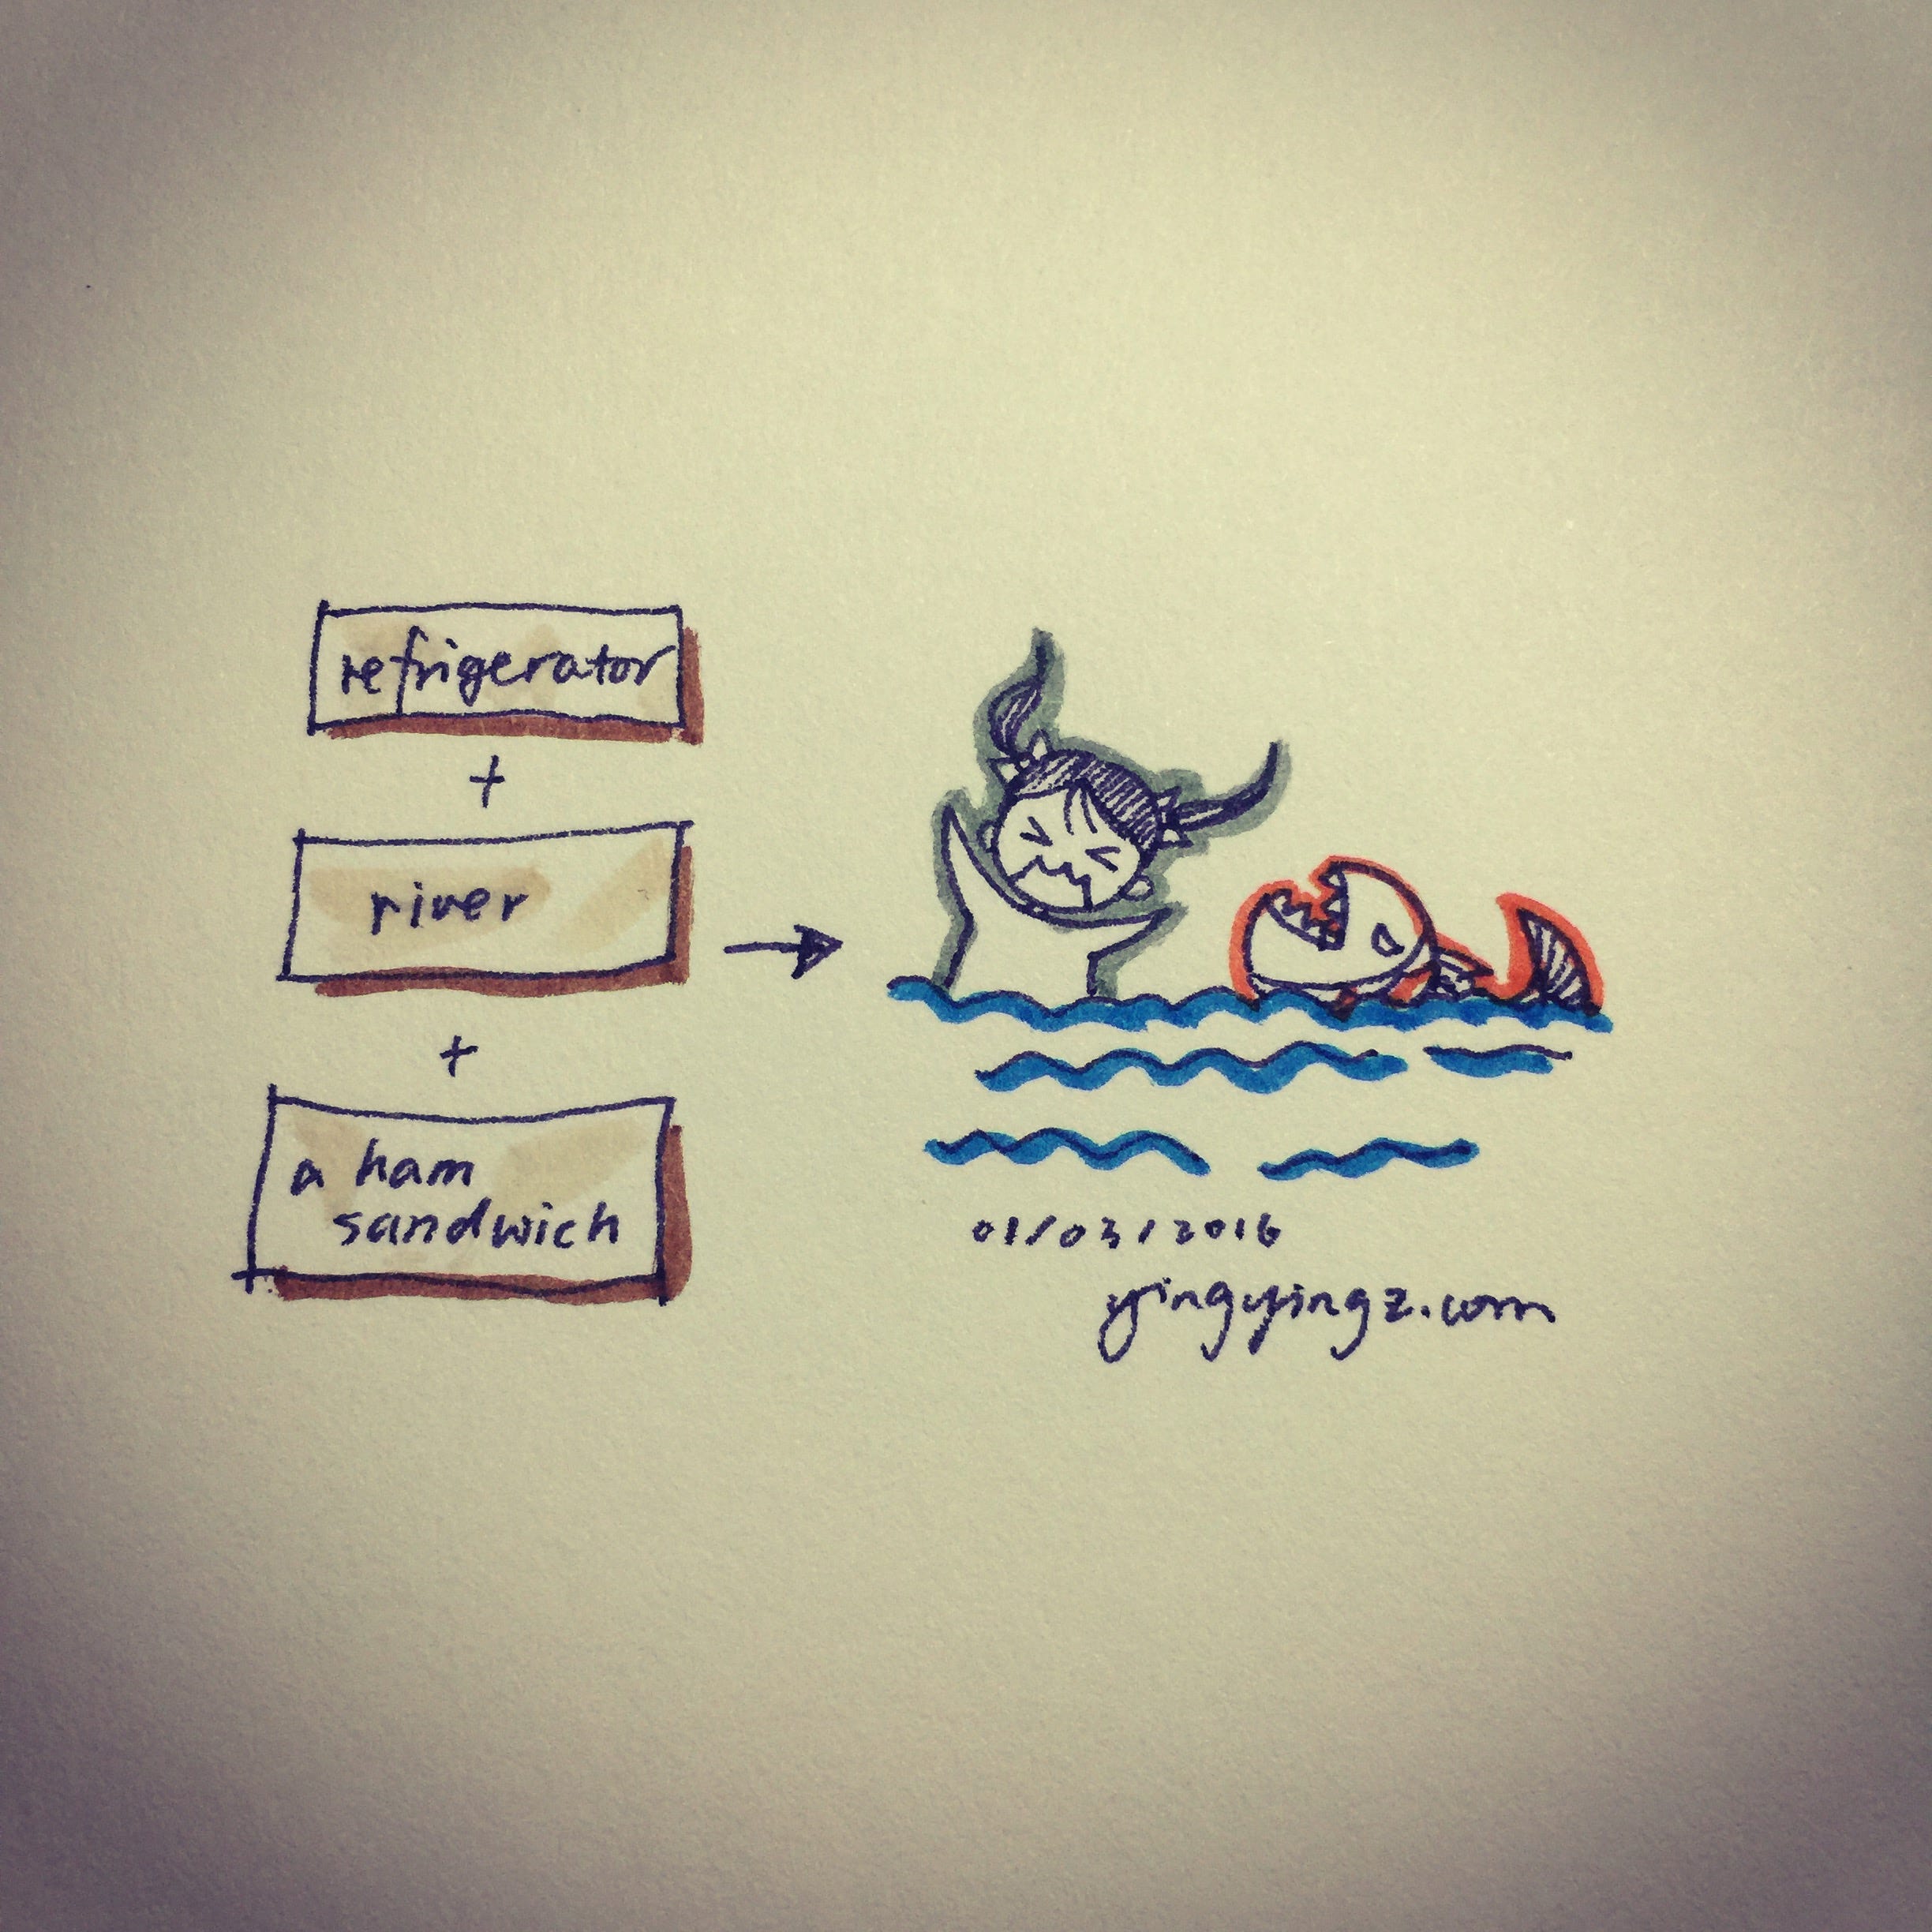 refrigerator
+
river
+
a ham
sandwich
01/03/2016
yingyingz.com